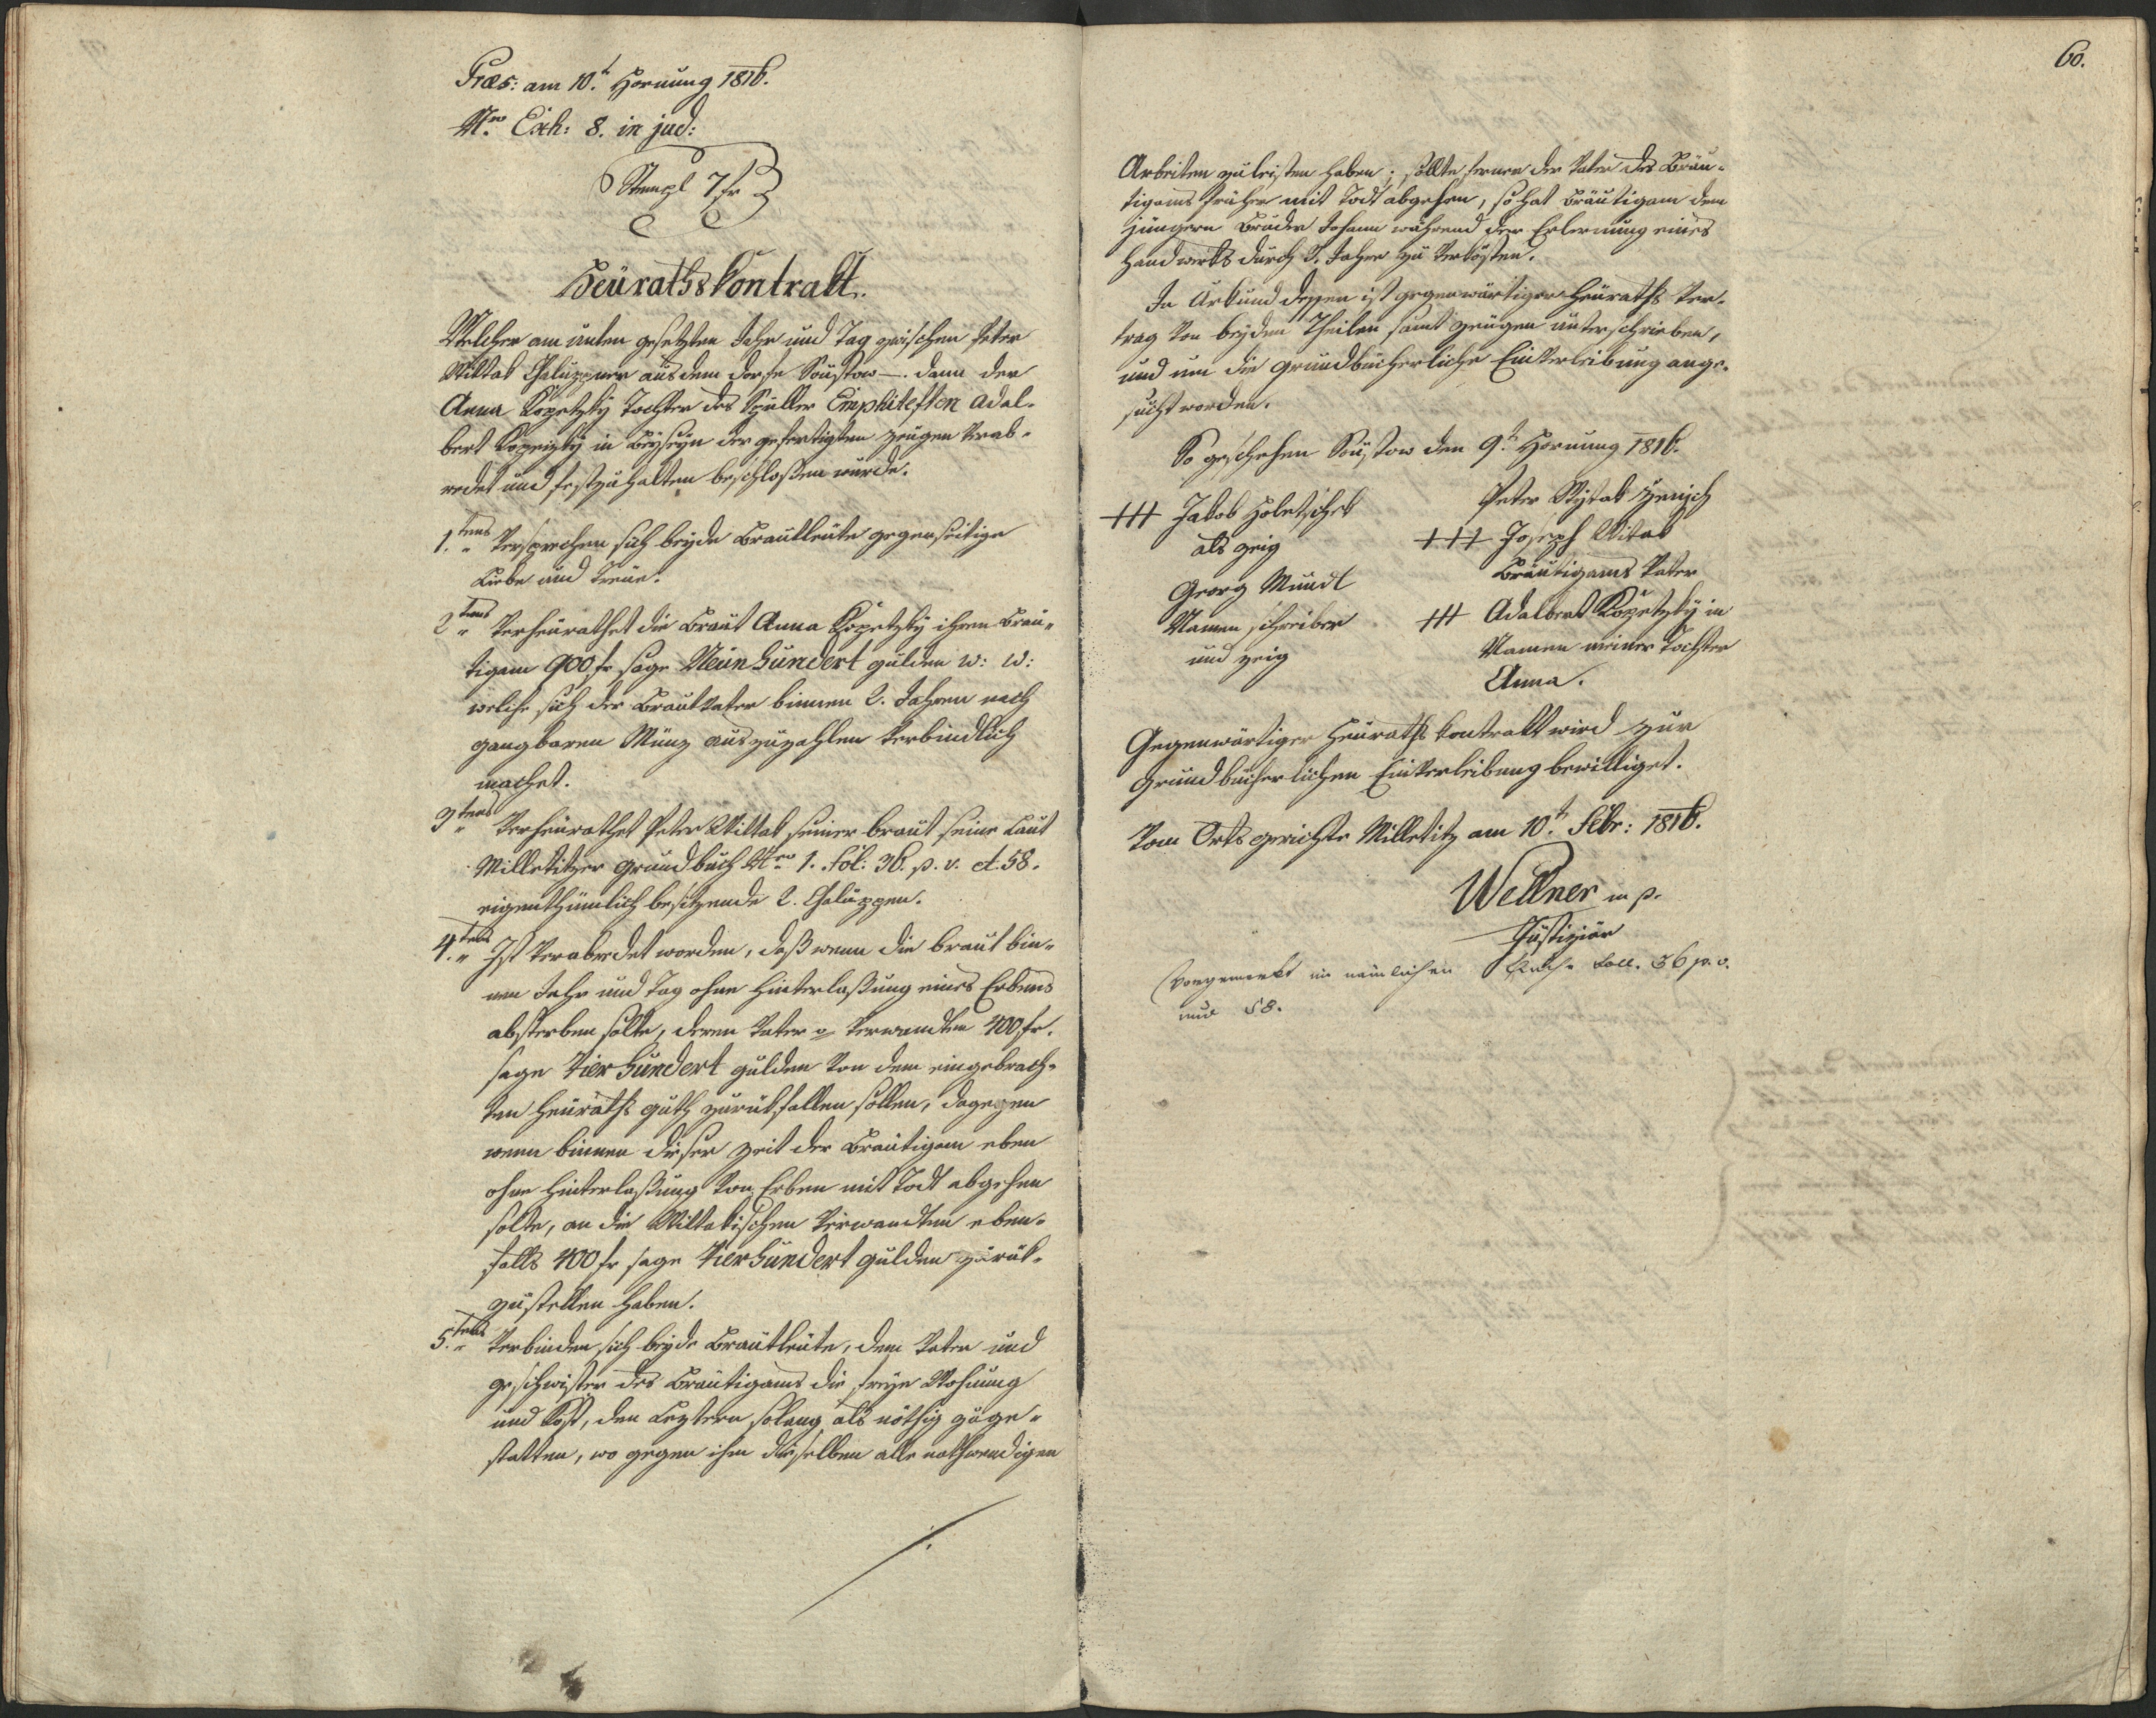 Præs: am 10.t Hornung 1816.
Nro Exh: 8. in jud:
Stempl 7 fr
Heürathskontrakt.
Welcher am unten gesetzten Jahr und Tag zwischen Peter
Wittak Chaluppner aus dem Dorfe Soustow –. dann der
Anna Kopetzky Tochter des Emphiteften Adal-
bert Kopeizky in Beyseyn der gefertigten Zeugen verab-
redet und festzuhalten beschloßen wurde.
1.tens Versprechen sich beyde Brautleute gegenseitige
Liebe und Treue.
2tens Verheürathet die Braut Anna Kopetzky ihrem Bräu-
tigam 900 fr sage Neün hundert gulden w: w:
welche sich der Brautvater binnen 2. Jahren nach
gangbaren Münz auszuzahlen verbindlich
machet.
3tens Verheürathet Peter Wittak seiner braut seine laut
Milletitzer Grundbuch Nro 1. Fol: 36. p. v. et. 58.
eigenthümlich besitzende 2. Chaluppen.
4.tens Ist verabredet worden, daß wenn die braut bin-
nen Jahr und Tag ohne Hinterlaßung eines Erbens
absterben sollte, deren Vater Verwandten 400 fr.
sage Vier hundert gulden von dem eingebrach-
ten Heüraths guth zurükfallen sollen, dagegen
wenn binnen dieser Zeit der Bräutigam eben
ohne Hinterlaßung von Erben mit Todt abgehen
solte, an die Wittakischen Verwandten eben-
falls 400 fr sage Vier hundert gulden zurük-
zustellen haben.
5.tens Verbinden sich beyde Brautleute, dem Vater und
geschwister des Bräutigams die freye Wohnung
und Kost, den Leztern solang als nöthig zu ge-
statten, wo gegen ihm dieselben alle nothwendigen
./.
60.
Arbeiten zu leisten haben; sollte ferner der Vater des Bräu-
tigams früher mit Todt abgehen, so hat Bräutigam dem
jüngern Bruder Johann während der Erlernung eines
Handwerks durch 3. Jahre zu verkösten.
In Urkund dessen ist gegenwärtiger Heüraths Ver-
trag von beyden Theilen samt Zeugen unterschrieben,
und um die grundbücherliche Einverleibung ange-
sucht worden.
So geschehen Soustow den 9.t Hornung 1816.
+++ Jakob Holetschek
als Zeig
Georg Mundl
Namen schreiber
und Zeig
Peter Wytak
+++ Joseph Witak
Bräutigams Vater
+++ Adalbert Kopetzky im
Namen meiner Tochter
Anna.
Gegenwärtiger Heüraths kontrakt wird zur
grundbücherlichen Einverleibung bewilliget.
Vom Ortsgerichte Milletitz am 10.t Febr: 1816.
Wellner m p.
Justiziär
Vorgemerkt im nämlichen Buche Foll. 36 p. v.
und 58.